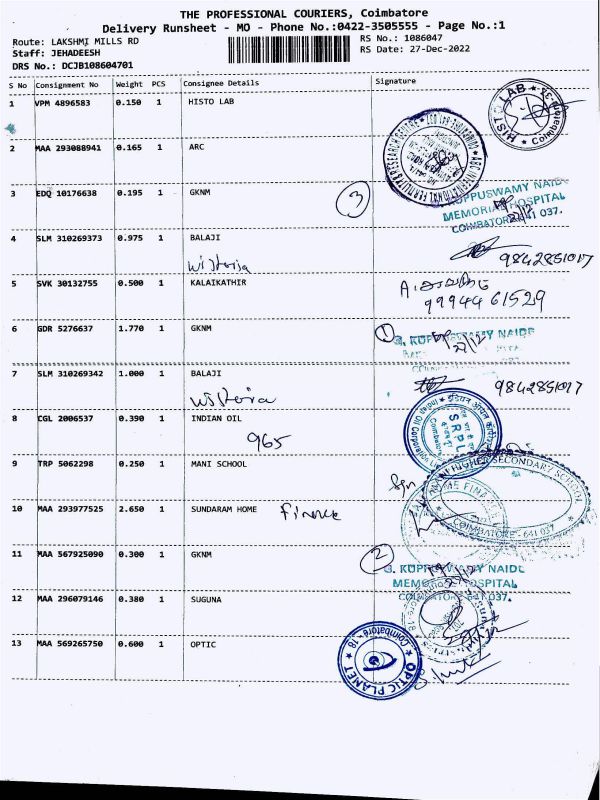 THE PROFESSIONAL COURIERS, Coimbatore
Delivery Runsheet - MO - Phone No.:0422-3505555 - Page No.:1
Route: LAKSHMI MILLS RD
RS No.: 1086047
Staff: JEHADEESH
RS Date: 27-Dec-2022
DRS No.: DCJB108604701
S No Consignment No Weight PCS Consignee Details Signature
1 VPM 4896583 0.150 1 HISTO LAB
HISTO LAB Coimbatore
2 MAA 293088941 0.165 1 ARC
3 EDQ 10176638 0.195 1 GKNM
3
KUPPUSWAMY NAIDU
MEMORIAL HOSPITAL
COIMBATORE 641 037.
27/12
4 SLM 310269373 0.975 1 BALAJI
wistoria
9842851017
5 SVK 30132755 0.500 1 KALAIKATHIR
99944 61529
6 GDR 5276637 1.770 1 GKNM
1
G. KUPPUSWAMY NAIDU
27/12
7 SLM 310269342 1.000 1 BALAJI
wistoria
9842851017
8 CGL 2006537 0.390 1 INDIAN OIL
965
Indian Oil Corporation
SRPL
Coimbatore
9 TRP 5062298 0.250 1 MANI SCHOOL
MANI HIGHER SECONDARY SCHOOL
COIMBATORE - 641 037
10 MAA 293977525 2.650 1 SUNDARAM HOME Finance
HOME FINANCE
11 MAA 567925090 0.300 1 GKNM
2
G. KUPPUSWAMY NAIDU
MEMORIAL HOSPITAL
COIMBATORE 641 037.
27/12
12 MAA 296079146 0.380 1 SUGUNA
13 MAA 569265750 0.600 1 OPTIC
OPTIC PLANET Coimbatore-18